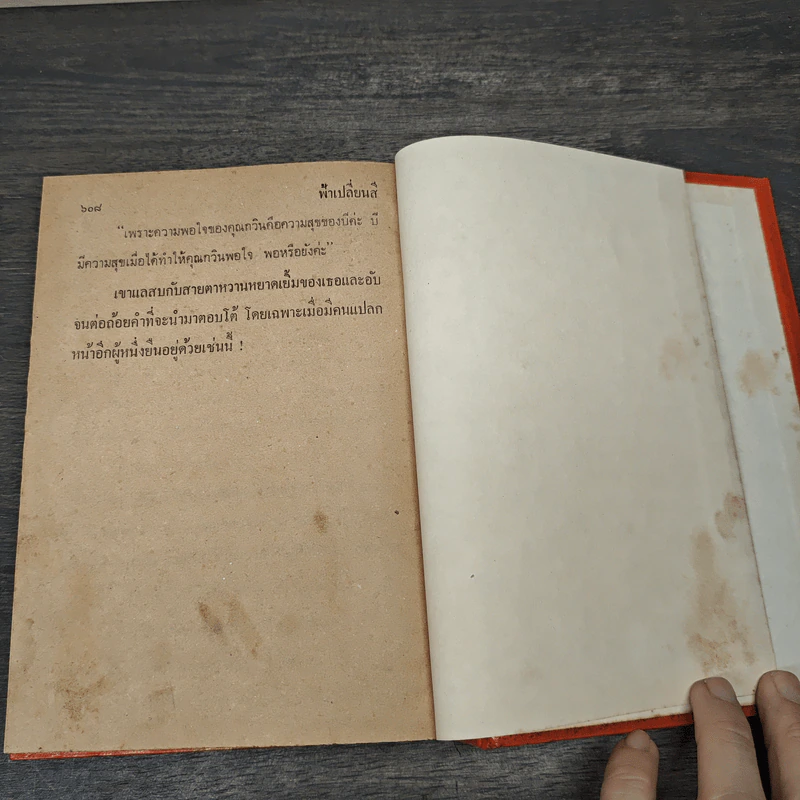 ๖๐๘
ฟ้าเปลี่ยนสี
“เพราะความพอใจของคุณถวินคือความสุขของบีค่ะ บี
มีความสุขเมื่อได้ทำให้คุณถวินพอใจ พอหรือยังค่ะ”
เขาแลสบกับสายตาหวานหยาดเยิ้มของเธอและอับ
จนต่อถ้อยคำที่จะนำมาตอบโต้ โดยเฉพาะเมื่อมีคนแปลก
หน้าอีกผู้หนึ่งยืนอยู่ด้วยเช่นนี้ !